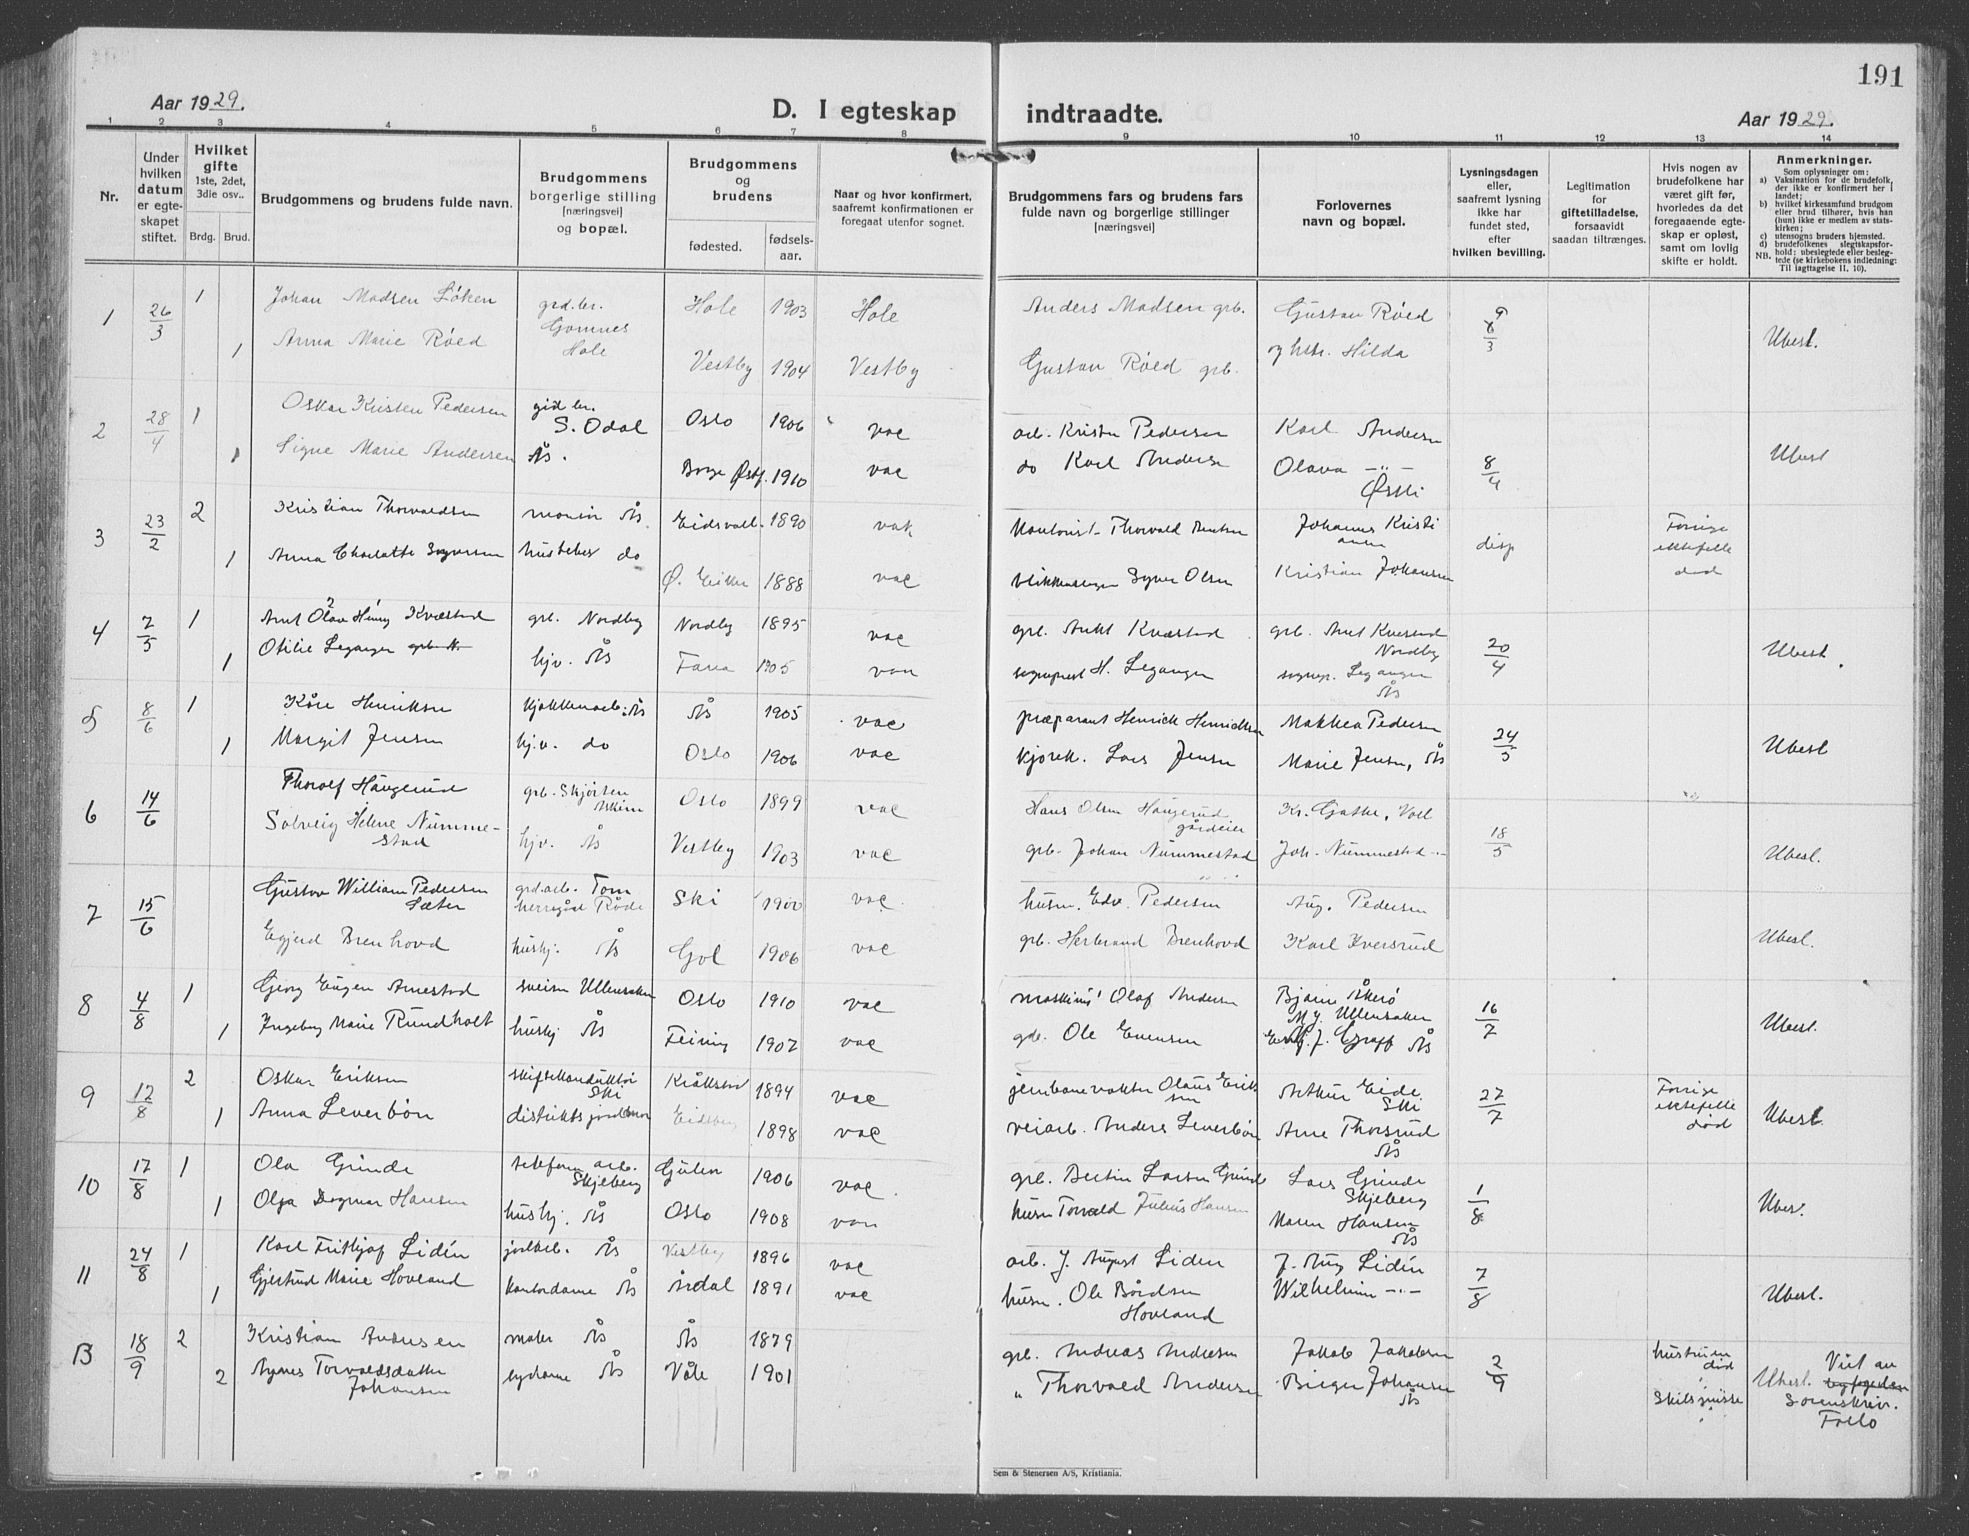 191
Aar 1929.
D. I egteskap indtraadte.
Aar 1929.
1 2 3 4 5 6 7 8 9 10 11 12 13 14
Nr.
Under hvilken datum er egteskapet stiftet.
Hvilket gifte 1ste, 2det, 3dle osv..
Brdg. Brud.
Brudgommens og brudens fulde navn.
Brudgommens borgerlige stilling [næringsvei] og bopæl.
Brudgommens og brudens
fødested.
fødselsaar.
Naar og hvor konfirmert, saafremt konfirmationen er foregaat utenfor sognet.
Brudgommens fars og brudens fars fulde navn og borgerlige stillinger [næringsvei]
Forlovernes navn og bopæl.
Lysningsdagen eller, saafremt lysning ikke har fundet sted, efter hvilken bevilling.
Legitimation for giftetilladelse, forsaavidt saadan tiltrænges.
Hvis nogen av brudefolkene har været gift før, hvorledes da det foregaaende egteskap er opløst, samt om lovlig skifte er holdt.
Anmerkninger.
Som oplysninger om:
a) Vaksination for de brudefolk, der ikke er konfirmert her i landet;
b) hvilket kirkesamfund brudgom eller brud tilhører, hvis han (hun) ikke er medlem av statskirken;
c) utensogns bruders hjemsted.
d) brudefolkenes slegtskapsforhold: ubeslegtede eller beslegtede (se kirkebokens indledning:
NB. Til iagttagelse II. 10).
1 26/3 1 Johan Madsen Løken grd.br. Gomnes Hole Hole 1903 Hole Anders Madsen grb. Gustav Røed 9/3 Ubesl.
1 Anna Marie Røed Vestby 1904 Vestby Gustav Røed grb. og hstr. Hilda
2 28/4 1 Oskar Kristen Pedersen S. Odal Oslo 1906 vac arb. Kristen Pedersen Karl Andersen 8/4 Ubesl
1 Signe Marie Andersen Ås. Borge Østf. 1910 vac do Karl Andersen Olava -"-
3 23/2 2 Kristian Thorvaldsen Ås Eidsvoll 1890 vak Thorvald Johannes Kristiansen disp Forrige ektefelle død
1 Anna Charlotte do Ø. Eiker 1888 vac Syver Olsen Kristian Johansen
4 7/5 1 Arnt Olav Henry Kvæstad grb. Nordby Nordby 1895 vac grb. Kvæstad grb. Arnt Kvæstad Nordby 20/4 Ubesl.
1 Otilie Leganger hjv. Ås Fana 1905 van sogneprest H. Leganger sognepr. Leganger Ås
5 8/6 1 Kåre Henriksen Ås Ås 1905 vac præparant Henrick Henricksen Pedersen 24/5 Ubesl
1 Margit Jensen hj.v. do Oslo 1906 vac kjørek. Lars Jensen Marie Jensen, Ås
6 14/6 Thorolf Haugerud grb. Skjørten Oslo 1899 vac Hans Olsen Haugerud gårdeier 18/5 Ubesl.
Solveig Helene Nummestad hjv. Ås Vestby 1903 vac grb. Johan Nummestad Joh. Nummestad -"-
7 15/6 Gustav William Pedersen Sæter grd.arb. Tom herregård Råde Ski 1900 vac. husm. Edv. Pedersen Aug. Pedersen Ubesl.
Brenhovd hushj. Ås Gol 1906 vac grb. Herbrand Brenhovd Karl Kversrud
8 4/8 1 Georg Eugen Arnestad Ullensaker Oslo 1910 vac Olaf Andersen Bjarne Åkerø Ullensaker 16/7 Ubesl.
1 Ingeborg Marie Rundholt hushj Ås Feiring 1907 vac Ole Evensen Graff Ås
9 12/8 2 Oskar Eriksen skiftekonduktør Ski Kråkstad 1894 vac jernbanevokter Olaus Eriksen Arthur Eide Ski 27/7 Forrige ektefelle død Ubesl.
1 Anna Leverbön Eidsberg 1898 vac veiarb. Anders Leverbön Arne Thorsrud Ås
10 17/8 1 Ola Grinde telefonarb. Skjeberg Gulen 1906 vac. grb. Bertin Larsen Grinde Lars Grinde Skjeberg 1/8 Ubesl.
1 Olga Dagmar Hansen hushj. Ås Oslo 1908 van husm Torvald Julius Hansen Maren Hansen Ås
11 24/8 1 Karl Fritjof Lidén Ås Vestby 1896 vac arb. J. August Liden J. Aug Lidén 7/8 Ubesl.
1 Gjertrud Marie Hovland kontordame Ås Årdal 1891 vac husm. Ole Bårdsen Hovland Wilhelmine -"-
B 18/9 2 Kristian Andersen maler Ås Ås 1879 grb. Andreas Andersen Jakob Jakobsen 2/9 hustruen død Ubesl. Viet av Sorenskriv. Follo
2 Agnes Torvaldsdatter Johansen sydame Ås Våle 1901 " Thorvald Andersen Birger Johansen Ås Skilsmisse
Sem & Stenersen A/S, Kristiania.